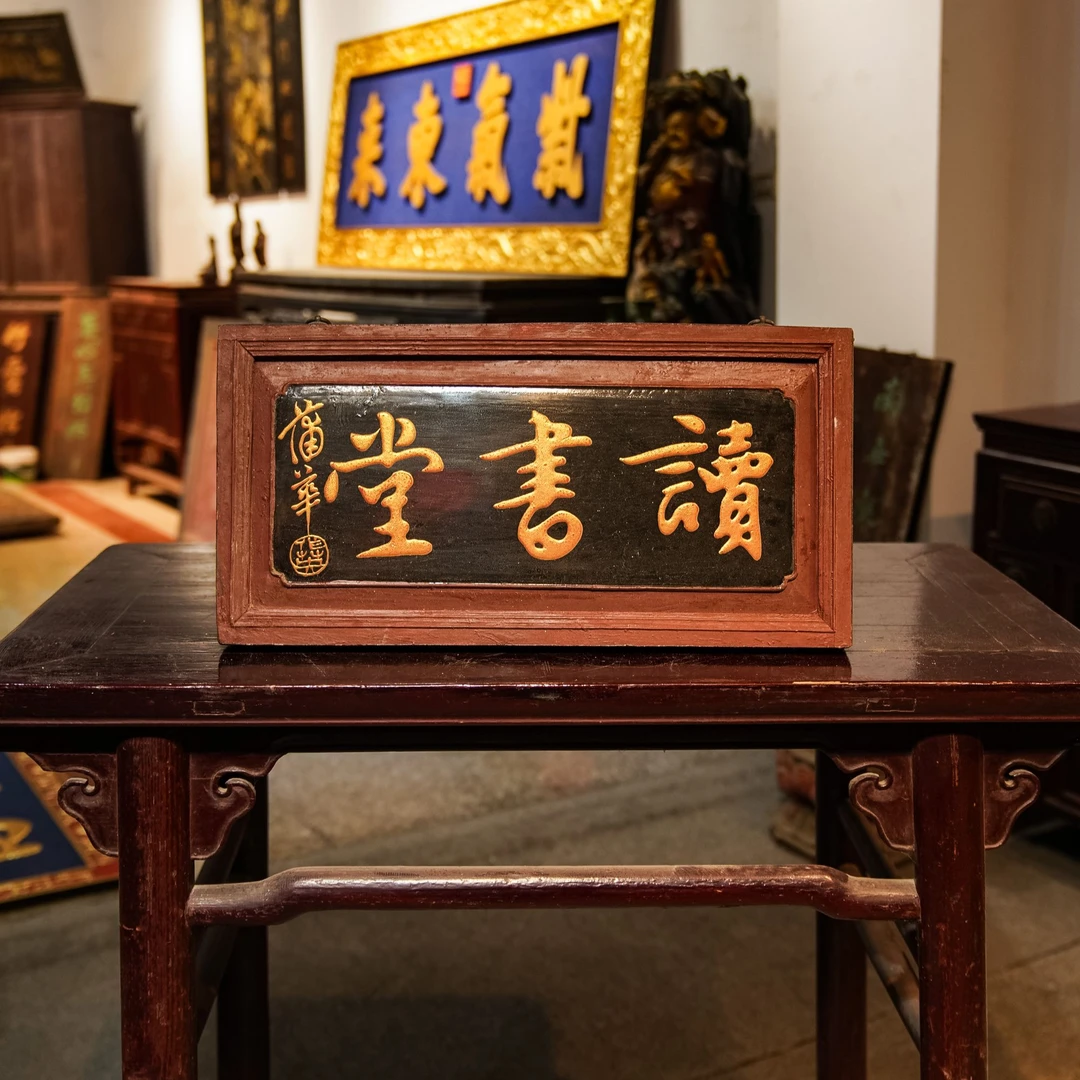 讀書堂
蒲華
紫氣東來